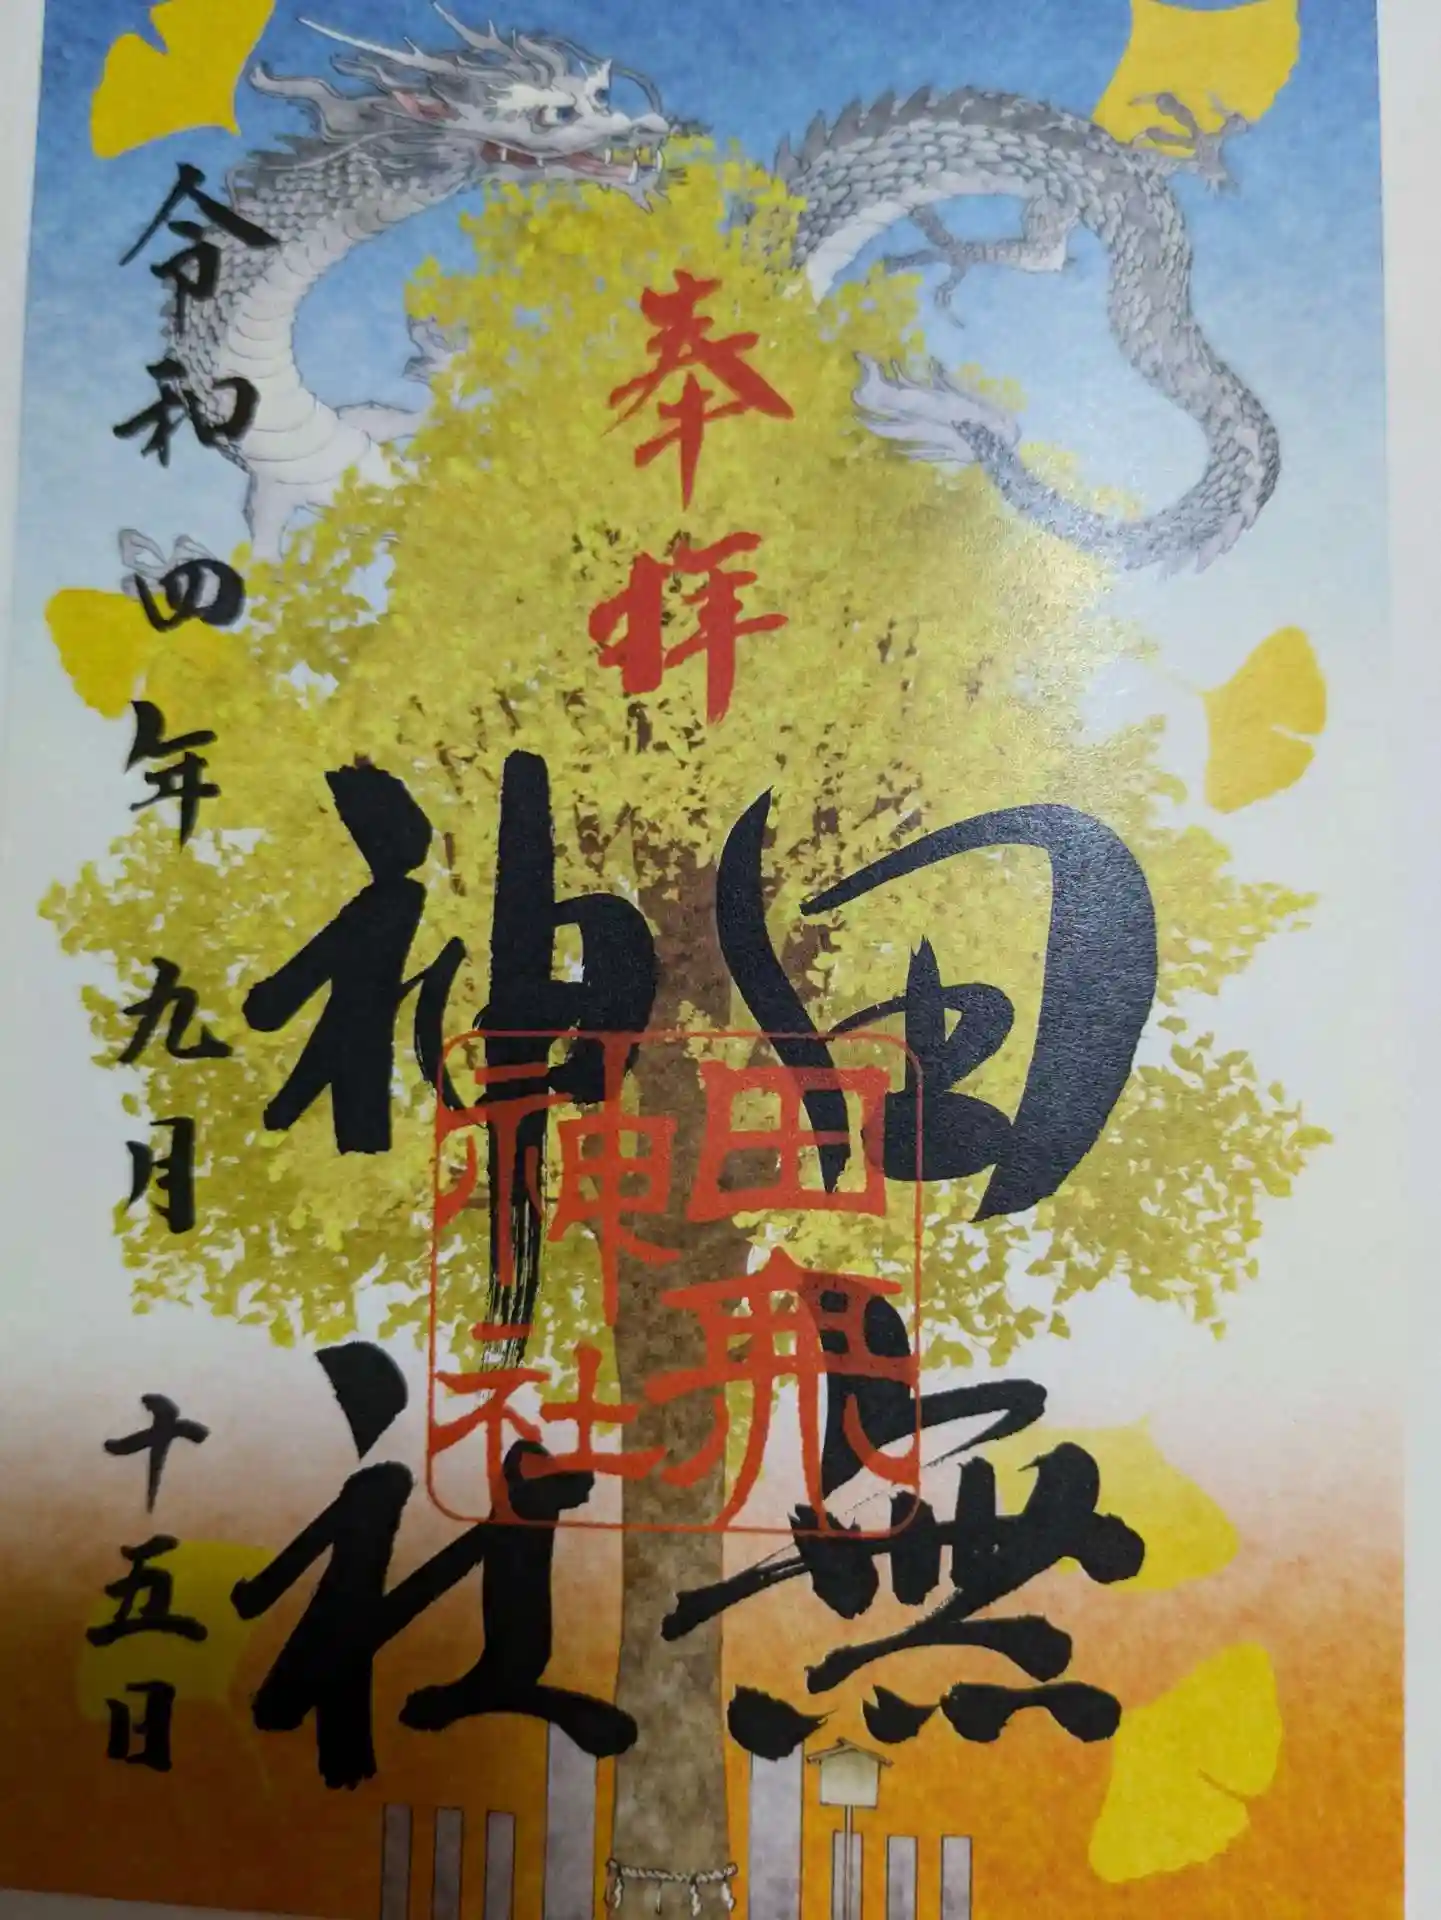 奉拝
田無
神社
田無
神社
令和四年九月十五日